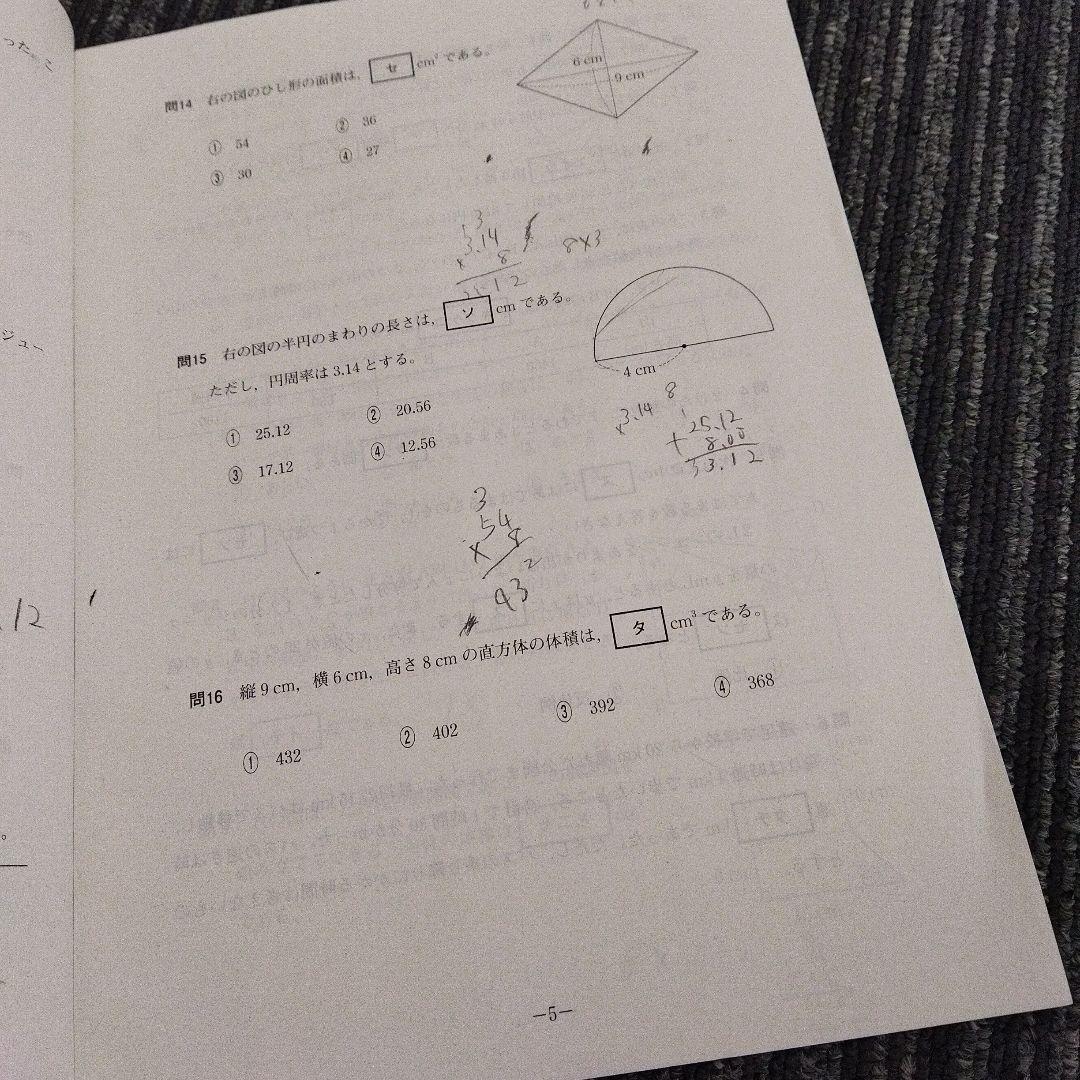 った。こ
ジュー
.12
問14 右の図のひし形の面積は, セ cm²である。
6 cm
9 cm
① 54
② 36
③ 30
④ 27
3
3.14
× 8
12
8×3
問15 右の図の半円のまわりの長さは, ソ cmである。
ただし, 円周率は3.14とする。
4 cm
① 25.12
② 20.56
③ 17.12
④ 12.56
8
×3.14
1
25.12
+ 8.00
33.12
3
54
× 8
432
問16 縦9cm, 横6cm, 高さ8cmの直方体の体積は, タ cm³である。
① 432
② 402
③ 392
④ 368
―5―